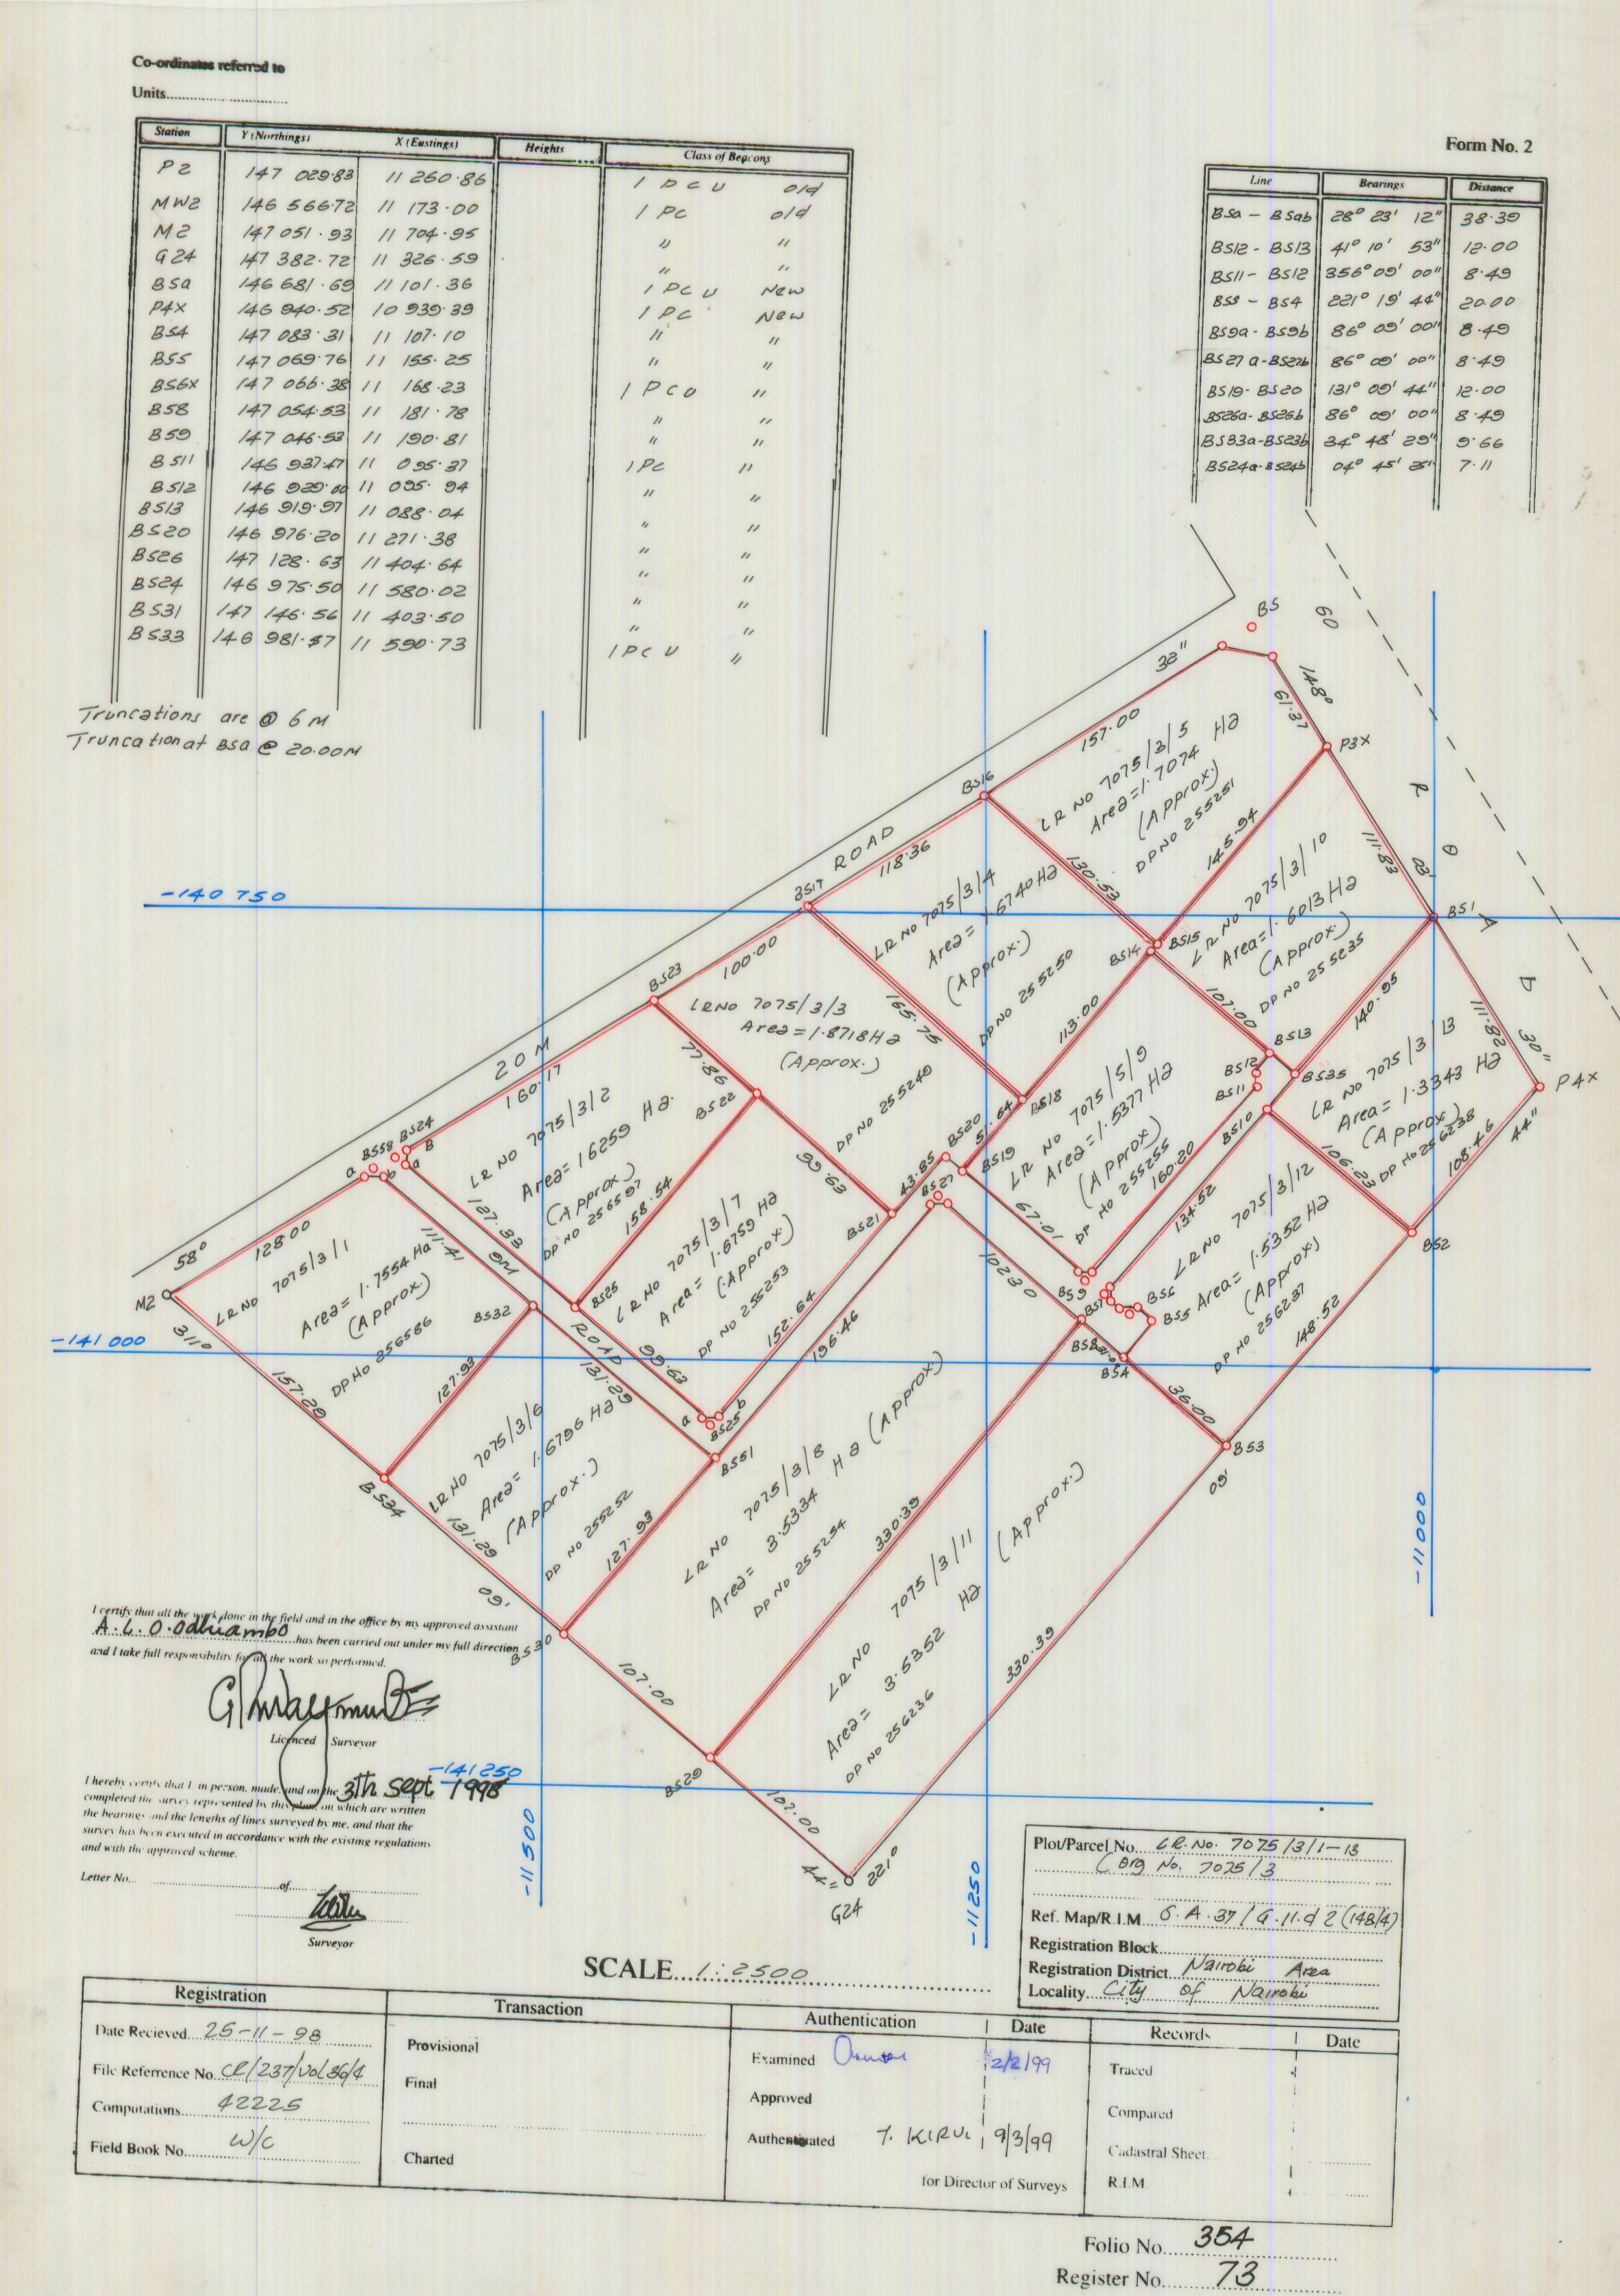 Co-ordinates referred to
Units
Form No. 2
Station Y (Northings) X (Eastings) Heights Class of Beacons
P2 147 029.83 11 260.86 1 P C U old
MW2 146 566.72 11 173.00 1 PC old
M2 147 051.93 11 704.95 " "
G24 147 382.72 11 326.59 " "
BSa 146 681.69 11 101.36 1 PC U New
P4X 146 940.52 10 939.39 1 PC New
BS4 147 083.31 11 107.10 " "
BS5 147 069.76 11 155.25 " "
BS6X 147 066.38 11 168.23 1 P C U "
BS8 147 054.53 11 181.78 " "
BS9 147 046.53 11 190.81 " "
BS11 146 937.47 11 095.37 1 PC "
BS12 146 929.00 11 095.94 " "
BS13 146 919.97 11 088.04 " "
BS20 146 976.20 11 271.38 " "
BS26 147 128.63 11 404.64 " "
BS24 146 975.50 11 580.02 " "
BS31 147 146.56 11 403.50 " "
BS33 146 981.57 11 590.73 1 PC U "
Truncations are @ 6 M
Truncation at BSa @ 20.00M
Line Bearings Distance
BSa - BSab 28° 23' 12" 38.39
BS12 - BS13 41° 10' 53" 12.00
BS11 - BS12 356° 09' 00" 8.49
BS5 - BS4 221° 19' 44" 20.00
BS9a - BS9b 86° 09' 00" 8.49
BS27a-BS27b 86° 09' 00" 8.49
BS19- BS20 131° 09' 44" 12.00
BS26a- BS26b 86° 09' 00" 8.49
BS33a-BS23b 34° 48' 29" 9.66
BS24a-BS24b 04° 45' 7.11
BS
60
32"
148°
61.37
157.00
P3X
LR NO 7075/3/5
Area=1.7074 Ha
(Approx.)
DP NO 255251
BS16
R O A D
ROAD
118.36
130.53
145.94
111.83
03'
BS17
-140 750
LR NO 7075/3/4
Area= 1.6740 Ha
(Approx.)
DP NO 255250
LR NO 7075/3/10
Area=1.6013 Ha
(Approx.)
DP NO 255235
BS1
BS14
BS15
100.00
BS23
LR NO 7075/3/3
Area=1.8718Ha
(Approx.)
DP NO 255249
165.75
113.00
107.00
140.95
111.82
30"
BS13
BS12
BS11
BS35
LR NO 7075/3/13
Area=1.3343 Ha
(Approx)
DP NO 256238
P4X
20 M
160.17
77.86
BS22
BS18
51.64
LR NO 7075/5/9
Area=1.5377 Ha
(Approx)
DP NO 255255
BS10
106.23
108.46
44"
BS24
BS58
a
b
B
a
LR NO 7075/3/2
Area=1.6259 Ha.
(Approx)
DP NO 256597
127.33
158.54
99.63
43.85
BS20
BS19
BS27
BS21
67.01
160.20
134.52
LR NO 7075/3/12
Area= 1.5352 Ha
(Approx)
DP NO 256237
BS2
58°
128.00
111.41
9M
M2
311°
LR NO 7075/3/1
Area= 1.7554 Ha
(Approx)
DP NO 256586
LR NO 7075/3/7
Area= 1.6759 Ha
(Approx)
DP NO 255253
102.30
BS9
BS7
BS6
BS5
BS8
BS4
148.52
BS32
BS25
ROAD
-141 000
157.29
127.93
131.29
99.63
152.64
196.46
36.00
BS3
09'
a
b
BS25
BS51
BS34
LR NO 7075/3/6
Area= 1.6796 Ha
(Approx.)
DP NO 255252
131.29
09'
127.93
LR NO 7075/3/8
Area= 3.5334 Ha (Approx)
DP NO 255254
330.39
LR NO 7075/3/11
Area= 3.5352 Ha (Approx.)
DP NO 256236
330.39
-11 000
BS30
107.00
BS29
107.00
44"
221°
G24
-141 250
-11 500
-11 250
I certify that all the work done in the field and in the office by my approved assistant
A. L. O. Odhiambo has been carried out under my full direction
and I take full responsibility for all the work so performed.
Licenced Surveyor
I hereby certify that I in person, made, and on the 3th Sept 1998
completed the survey represented by this plan, on which are written
the bearings and the lengths of lines surveyed by me, and that the
survey has been executed in accordance with the existing regulations
and with the approved scheme.
Letter No. of
Surveyor
SCALE 1:2500
Plot/Parcel No. LR. No. 7075/3/1-13
(Org No. 7075/3
Ref. Map/R.I.M S.A.37/G.11.d 2 (148/4)
Registration Block
Registration District Nairobi Area
Locality City of Nairobi
Registration Transaction Authentication Date Records Date
Date Recieved 25-11-98 Provisional Examined 2/2/99 Traced
File Referrence No CR/237/Vol 36/4 Final Approved Compared
Computations 42225 Authenticated T. KIRUI 9/3/99 Cadastral Sheet
Field Book No. W/C Charted for Director of Surveys R.I.M.
Folio No. 354
Register No. 73